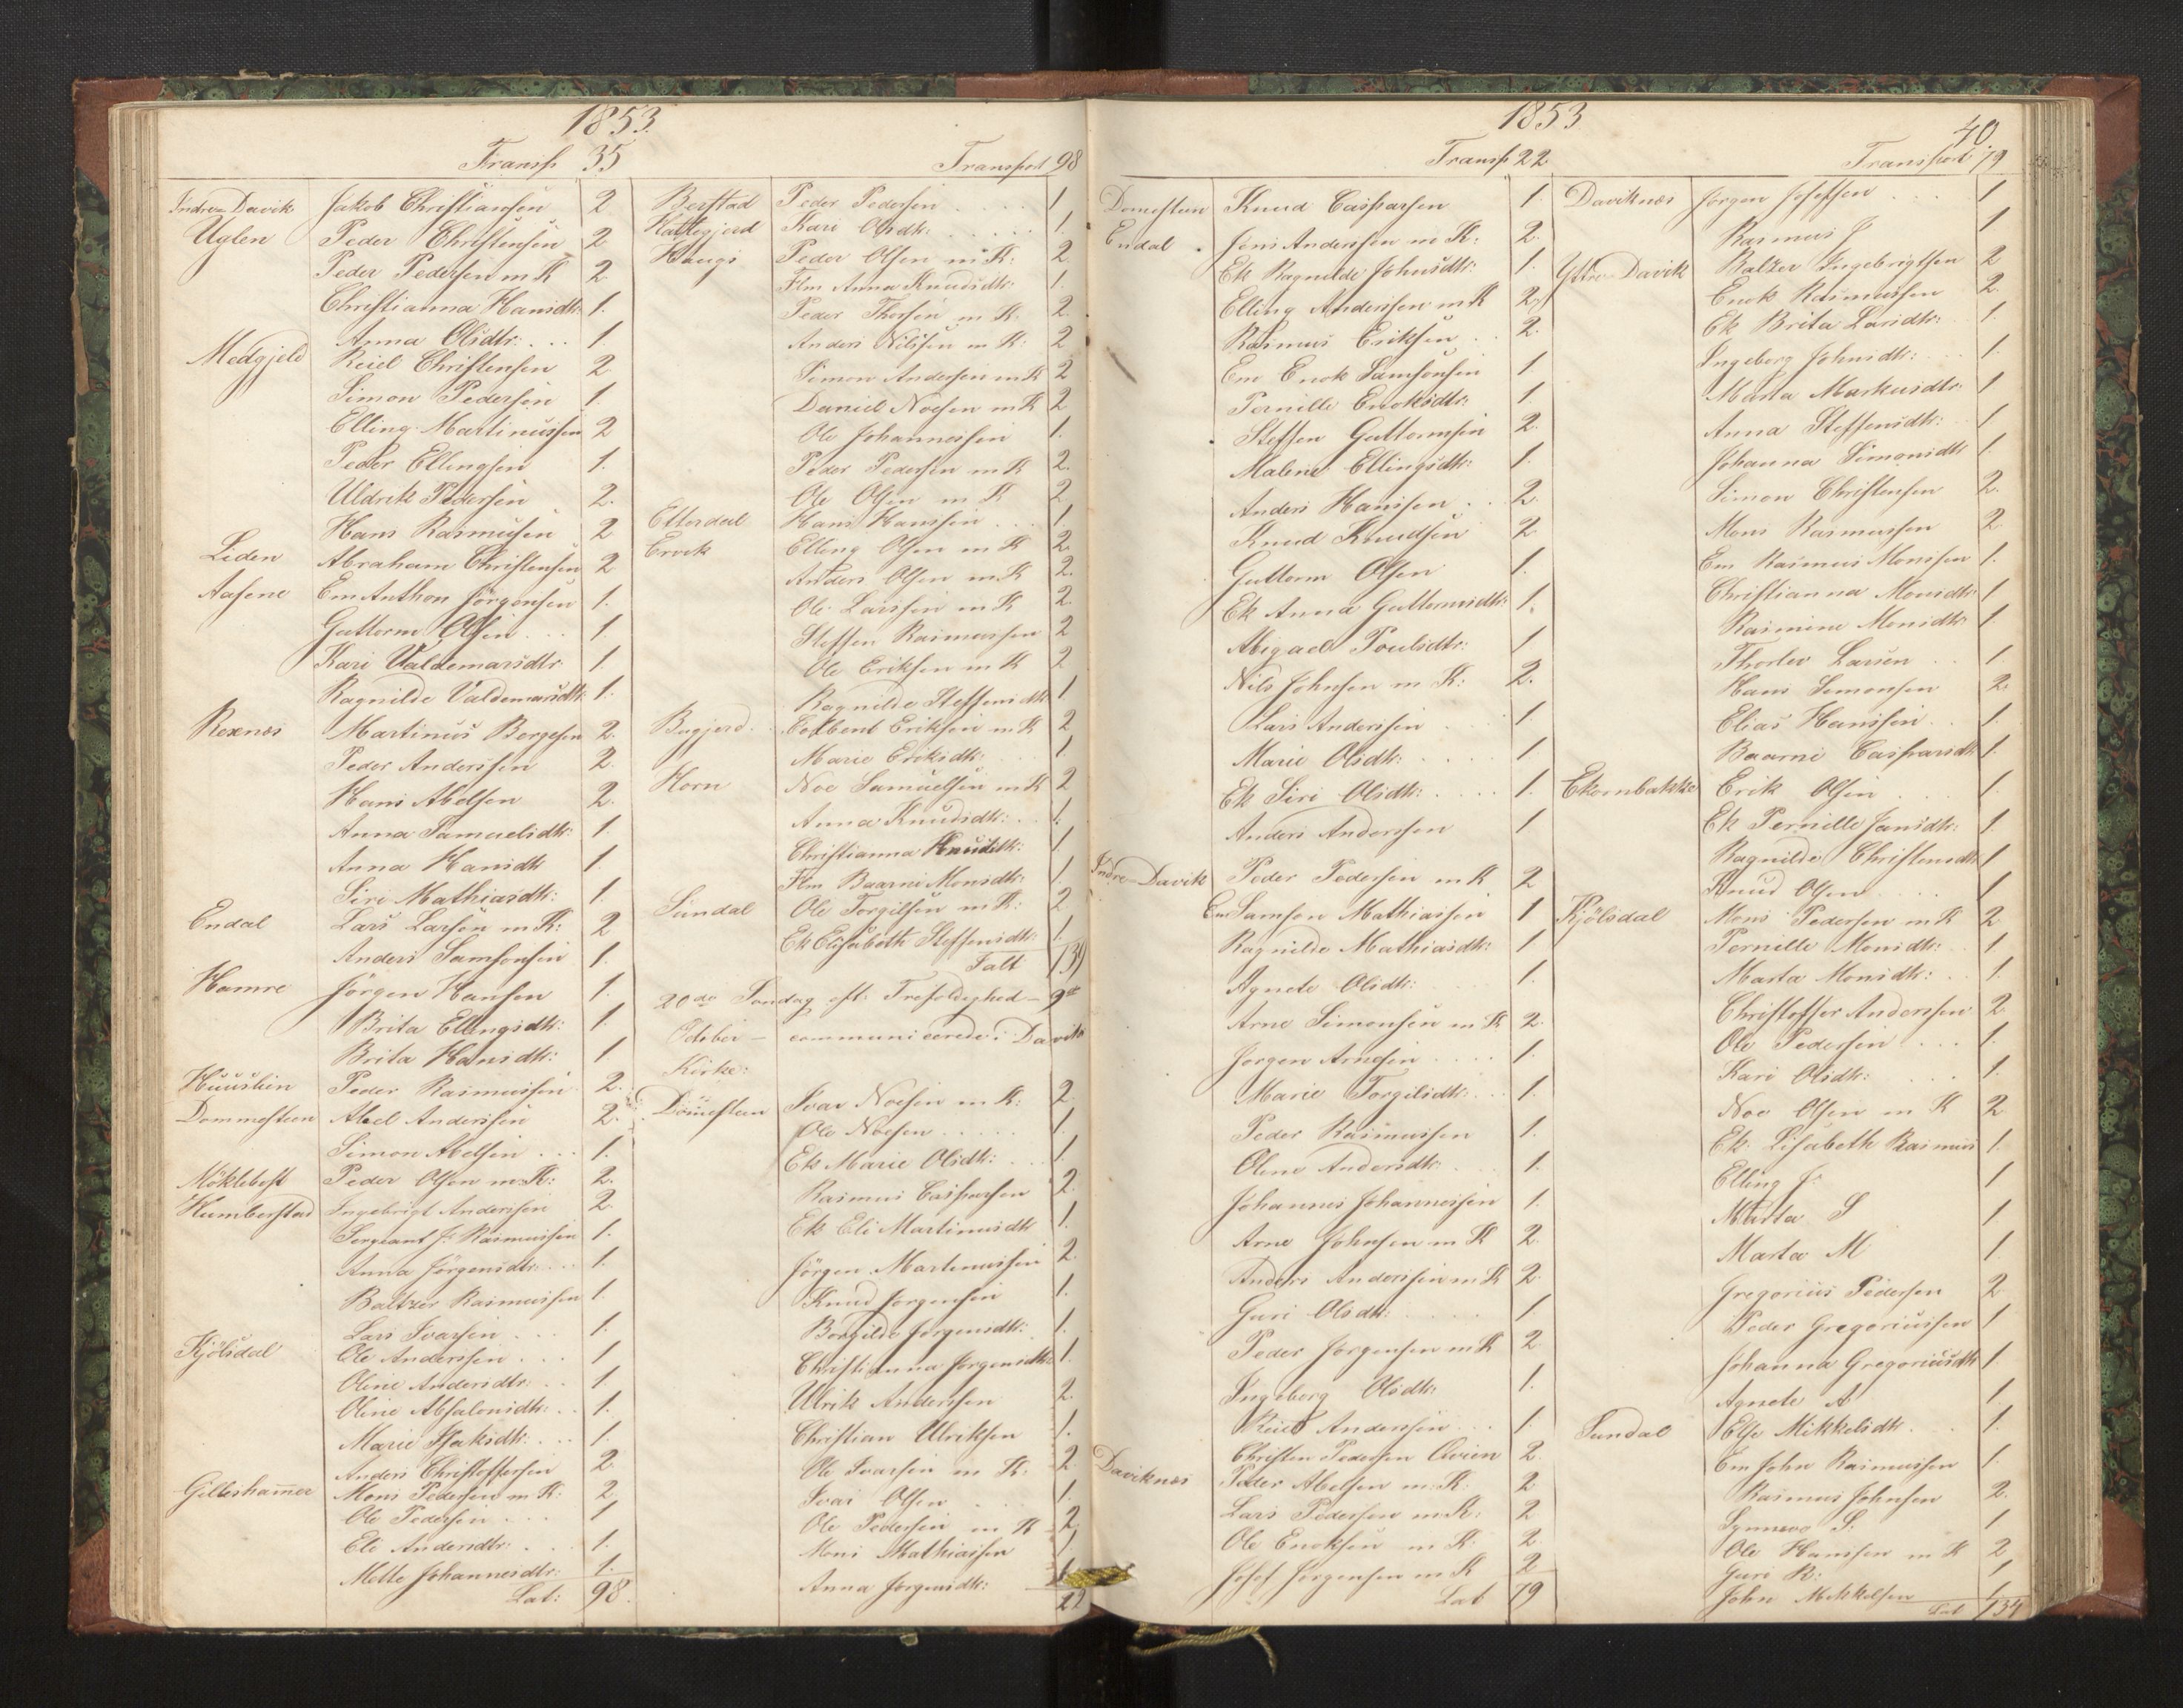 1853.
Transp 35
Indre-Davik Jakob Christiansen 2
Uglen Peder Christensen 2
Peder Pedersen m K 2.
Christianna Hansdtr: 1.
Anna Olsdtr: . . . 1.
Medgjeld Reiel Christensen 2
Simon Pedersen 1.
Elling Martinussen 2
Peder Ellingsen 1.
Uldrik Pedersen 2.
Hans Rasmusen 2
Liden Abraham Christensen 2
Aasene Em Anthon Jörgensen 1.
Guttorm Olsen . . . 1.
Kari Valdemarsdtr 1.
Ragnilde Valdemarsdtr: 1.
Rexnes Martinus Borgesen 2.
Peder Anderssen 2.
Hans Abelsen 2.
Anna Samuelsdtr: 1.
Anna Hansdtr 1.
Siri Mathiasdtr: 1.
Endal Lars Larsen m K: 2
Anders Samsonsen 1.
Hamre Jörgen Hansen 1.
Brita Ellingsdtr: 1.
Brita Hansdtr: 1
Huuslien Peder Rasmussen 2.
Dommesteen Abel Anderssen 2.
Simon Abelsen . . . 1.
Möklebost Peder Olsen m K: 2.
Humberstad Ingebrigt Anderssen 2.
Sergeant J: Rasmussen 1.
Anna Jörgensdtr: . . . 1.
Baltzer Rasmussen 1.
Lars Ivarsen . . . 1.
Kjölsdal Ole Anderssen . . . 1
Oline Andersdtr: . . 1
Oline Absalonsdtr: . . 1.
Marie Isaksdtr: . . . 1.
Anders Christoffersen 2.
Gilleshammer Mons Pedersen m K: 2.
Ole Pedersen . . . 1
Eli Andersdtr: . . . 1.
Mette Johannesdtr: 1.
Lat: 98.
Transport 98
Berstad Peder Pedersen . . . . 1
Hattegjerd Kari Olsdtr: . . . . . 1.
Haugs Peder Olsen m K: 2.
Flm Anna Knudsdtr: 1.
Peder Thorsen m K. 2.
Anders Nilssen m K: 2
Simon Andersen m K 2
Daniel Noesen m K 2
Ole Johannessen 1.
Peder Pedersen m K 2.
Ole Olsen m K 2
Etterdal Hans Hanssen . . . 1.
Ervik Elling Olsen m K 2.
Anders Olsen m K 2.
Ole Larssen m K 2.
Steffen Rasmussen 2
Ole Eriksen m K 2
Ragnilde Steffensdtr 1
Bugjerd. Eriksen m K 2
Marie Eriksdtr: 1
Horn Noe Samuelsen m K 2
Anna Knudsdtr: . . 1.
Christianna Knudsdtr: 1.
Flm Baarni Monsdtr: 1.
Sundal Ole Torgilsen m K: 2
Ek Elisabeth Steffensdtr: 1.
Talt 139
20de Söndag eft: Trefoldighed – 9de
October – communicerede i Davik
Kirke:
Dömesteen Ivar Noesen m K: 2.
Ole Noesen . . . . . 1.
Ek Marie Olsdtr: . . . 1.
Rasmus Casparsen 2.
Ek Eli Martinusdtr 1.
Jörgen Martinussen 2.
Knud Jorgensen 1.
Borgilde Jorgensdtr: 1.
Christianna Jorgensdtr: 1.
Ulrik Anderssen 2.
Christian Ulriksen 1.
Ole Ivarsen m K: 2
Ivar Olsen . . . 1.
Ole Pedersen m K 2.
Mons Mathiassen 1
Anna Jorgensdtr: 1
22
1853
40
Transp 22
Domesteen Knud Casparsen 1.
Endal Jens Anderssen m K: 2.
Ek Ragnilde Johnsdtr: 1.
Elling Anderssen m K 2
Rasmus Eriksen . . 2.
Em Enok Samsonsen 1
Pernille Enoksdtr: 1.
Steffen Guttormsen 2.
Malene Ellingsdtr: 1.
Anders Hanssen . . . 2.
Knud Knudsen 2
Guttorm Olsen 1.
Ek Anna Guttormsdtr: 1.
Abigael Poulsdtr: 1
Nils Johnsen m K: 2.
Lars Anderssen 1.
Marie Olsdtr: . . . . 1
Ek Siri Olsdtr: . . . . 1.
Anders Anderssen 1
Indre-Davik Peder Pedersen m K 2
Em Samson Mathiassen 1
Ragnilde Mathiasdtr: 1
Agnete Olsdtr: 1.
Arne Simonsen m K 2.
Jorgen Arnesen . . . . 1.
Marie Torgilsdtr: . . . 1.
Peder Rasmussen 1.
Oline Andersdtr: . . 1.
Johannes Johannessen 1.
Arne Johnsen m K 2.
Anders Anderssen m K 2.
Guri Olsdtr: . . . . 1
Peder Jorgensen m K 2
Ingeborg Olsdtr: 1.
Reiel Anderssen . . . 1.
Christen Pedersen 2.
Daviknes Peder Abelsen m K: 2
Lars Pedersen m K: 2
Ole Enoksen m K: 2.
Josef Jorgensen m K 2
Lat 79
Transport 79
Daviknes Jorgen Josefsen . . . . 1
Rasmus J 1
Yttre-Davik Baltzer Ingebrigtsen 2
Enok Rasmussen 2.
Ek Brita Larsdtr: . . 1.
Ingeborg Johnsdtr: . . 1.
Marta Markusdtr: 1
Anna Steffensdtr: 1
Johanna Simonsdtr 1.
Simon Christensen 2.
Mons Rasmussen 2
Em Rasmus Monssen 1.
Christianna Monsdtr: 1
Rasmine Monsdtr 1
Thorlev Larsen . . 1.
Hans Simonsen 2.
Elias Hanssen . . 1.
Baarni Casparsdtr 1.
Ekornbakke Erik Olsen . . . 1.
Ek Pernille Jansdtr: 1.
Ragnilde Christensdtr 1
Knud Olsen . . . 1
Kjölsdal Mons Pedersen m K 2
Pernille Monsdtr: . . 1
Marta Monsdtr: . . 1.
Christoffer Anderssen 2
Ole Pedersen . . . 1.
Kari Olsdtr: . . . 1.
Noe Olsen m K 2.
Ek. Lisabeth Rasmus 1.
Elling J: 1
Marta S 1
Marta M 1.
Gregorius Pedersen 2
Peder Gregoriussen 1
Johanna Gregoriusdtr 1
Agnete A 1.
Sundal Else Mikkelsdtr . . 1.
Em John Rasmussen 1.
Rasmus Johnsen 2.
Synneve S: 1
Ole Hanssen m K 2
Guri R: 1
John Mikkelsen 1
Lat 134